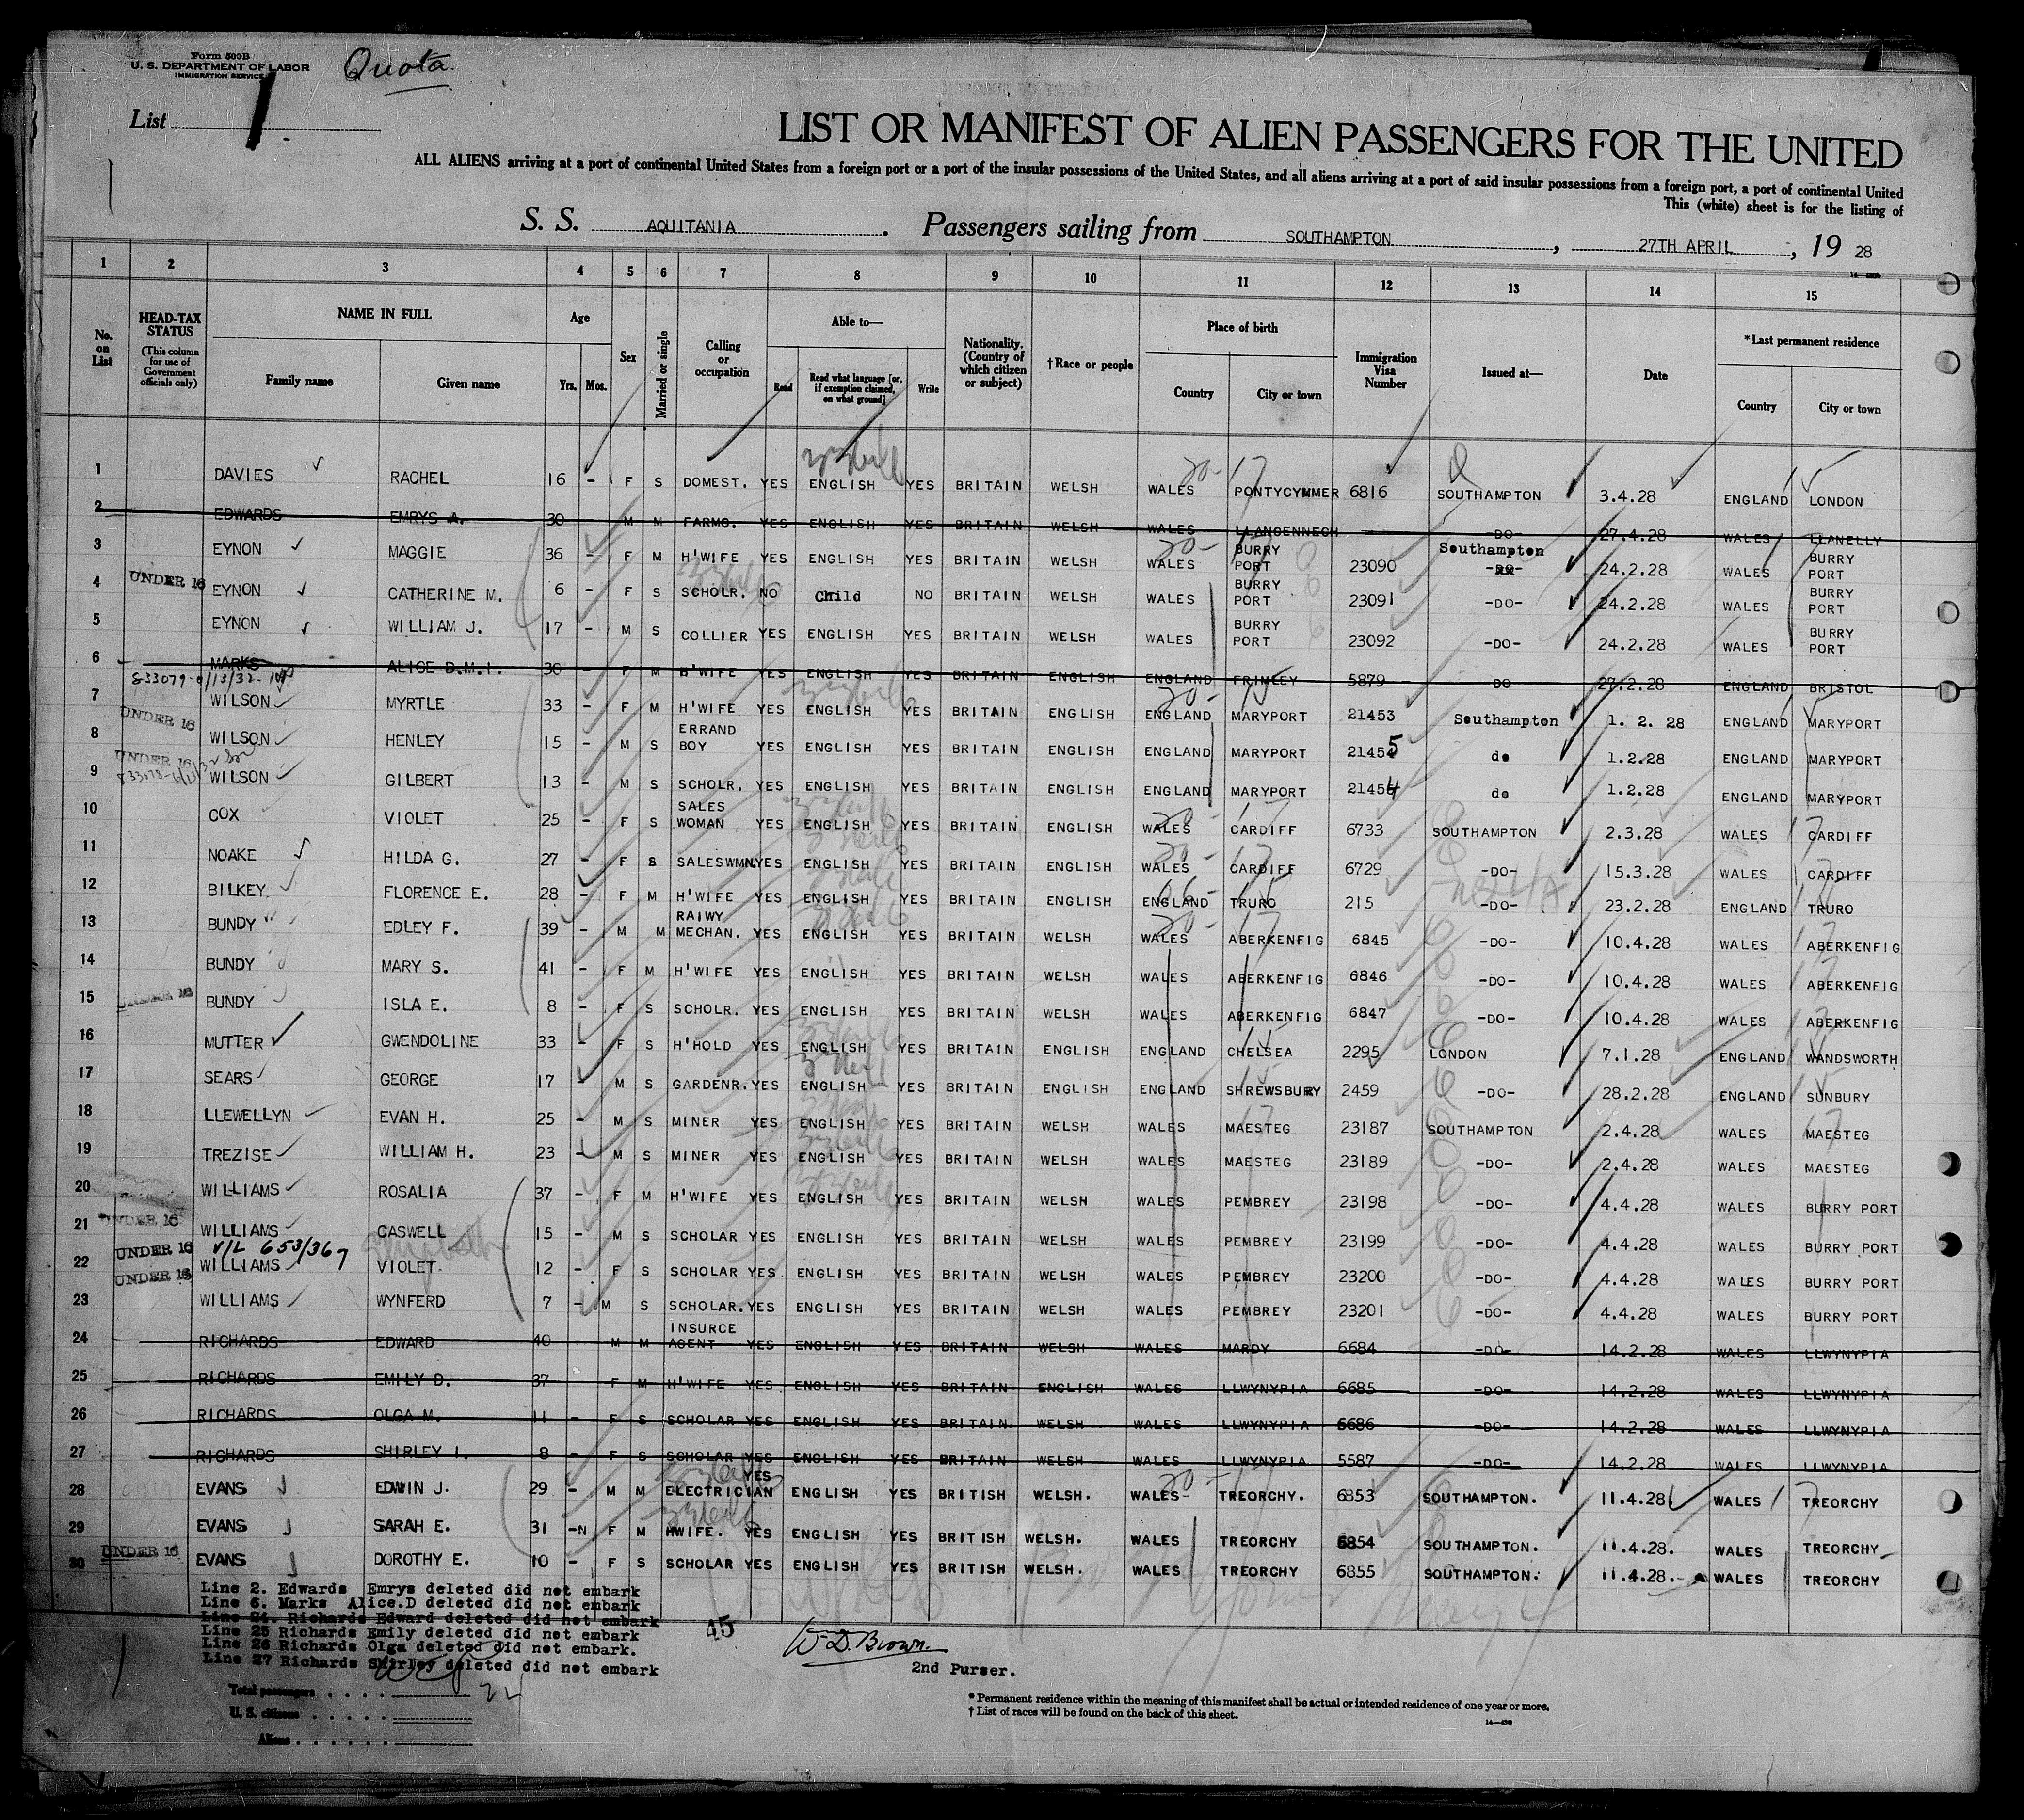 Form 500B
U. S. DEPARTMENT OF LABOR
IMMIGRATION SERVICE
Quota
List 1
LIST OR MANIFEST OF ALIEN PASSENGERS FOR THE UNITED
ALL ALIENS arriving at a port of continental United States from a foreign port or a port of the insular possessions of the United States, and all aliens arriving at a port of said insular possessions from a foreign port, a port of continental United
This (white) sheet is for the listing of
S. S. AQUITANIA. Passengers sailing from SOUTHAMPTON, 27TH APRIL, 19 28
1 2 3 4 5 6 7 8 9 10 11 12 13 14 15
No. on List HEAD-TAX STATUS (This column for use of Government officials only) NAME IN FULL Family name Given name Age Yrs. Mos. Sex Married or single Calling or occupation Able to— Read Read what language [or, if exemption claimed, on what ground] Write Nationality. (Country of which citizen or subject) †Race or people Place of birth Country City or town Immigration Visa Number Issued at— Date *Last permanent residence Country City or town
1 DAVIES RACHEL 16 - F S DOMEST. YES ENGLISH YES BRITAIN WELSH WALES PONTYCYMMER 6816 SOUTHAMPTON 3.4.28 ENGLAND LONDON
2 EDWARDS EMRYS A. 30 M M FARMG. YES ENGLISH YES BRITAIN WELSH WALES LLANGENNECH -DO- 27.4.28 WALES LLANELLY
3 EYNON MAGGIE 36 - F M H'WIFE YES ENGLISH YES BRITAIN WELSH WALES BURRY PORT 23090 Southampton -DO- 24.2.28 WALES BURRY PORT
4 UNDER 16 EYNON CATHERINE M. 6 - F S SCHOLR. NO Child NO BRITAIN WELSH WALES BURRY PORT 23091 -DO- 24.2.28 WALES BURRY PORT
5 EYNON WILLIAM J. 17 - M S COLLIER YES ENGLISH YES BRITAIN WELSH WALES BURRY PORT 23092 -DO- 24.2.28 WALES BURRY PORT
6 MARKS ALICE D.M.I. 30 - F M H'WIFE YES ENGLISH YES BRITAIN ENGLISH ENGLAND FRIMLEY 5879 DO 27.2.28 ENGLAND BRISTOL
7 WILSON MYRTLE 33 - F M H'WIFE YES ENGLISH YES BRITAIN ENGLISH ENGLAND MARYPORT 21453 Southampton 1. 2. 28 ENGLAND MARYPORT
8 UNDER 16 WILSON HENLEY 15 - M S ERRAND BOY YES ENGLISH YES BRITAIN ENGLISH ENGLAND MARYPORT 21455 do 1.2.28 ENGLAND MARYPORT
9 UNDER 16 WILSON GILBERT 13 - M S SCHOLR. YES ENGLISH YES BRITAIN ENGLISH ENGLAND MARYPORT 21454 do 1.2.28 ENGLAND MARYPORT
10 COX VIOLET 25 - F S SALES WOMAN YES ENGLISH YES BRITAIN ENGLISH WALES CARDIFF 6733 SOUTHAMPTON 2.3.28 WALES CARDIFF
11 NOAKE HILDA G. 27 - F S SALESWMN. YES ENGLISH YES BRITAIN ENGLISH WALES CARDIFF 6729 -DO- 15.3.28 WALES CARDIFF
12 BILKEY FLORENCE E. 28 - F M H'WIFE YES ENGLISH YES BRITAIN ENGLISH ENGLAND TRURO 215 -DO- 23.2.28 ENGLAND TRURO
13 BUNDY EDLEY F. 39 - M M RAIWY MECHAN. YES ENGLISH YES BRITAIN WELSH WALES ABERKENFIG 6845 -DO- 10.4.28 WALES ABERKENFIG
14 BUNDY MARY S. 41 - F M H'WIFE YES ENGLISH YES BRITAIN WELSH WALES ABERKENFIG 6846 -DO- 10.4.28 WALES ABERKENFIG
15 UNDER 16 BUNDY ISLA E. 8 - F S SCHOLR. YES ENGLISH YES BRITAIN WELSH WALES ABERKENFIG 6847 -DO- 10.4.28 WALES ABERKENFIG
16 MUTTER GWENDOLINE 33 - F S H'HOLD YES ENGLISH YES BRITAIN ENGLISH ENGLAND CHELSEA 2295 LONDON 7.1.28 ENGLAND WANDSWORTH
17 SEARS GEORGE 17 - M S GARDENR. YES ENGLISH YES BRITAIN ENGLISH ENGLAND SHREWSBURY 2459 -DO- 28.2.28 ENGLAND SUNBURY
18 LLEWELLYN EVAN H. 25 - M S MINER YES ENGLISH YES BRITAIN WELSH WALES MAESTEG 23187 SOUTHAMPTON 2.4.28 WALES MAESTEG
19 TREZISE WILLIAM H. 23 - M S MINER YES ENGLISH YES BRITAIN WELSH WALES MAESTEG 23189 -DO- 2.4.28 WALES MAESTEG
20 WILLIAMS ROSALIA 37 - F M H'WIFE YES ENGLISH YES BRITAIN WELSH WALES PEMBREY 23198 -DO- 4.4.28 WALES BURRY PORT
21 UNDER 16 WILLIAMS CASWELL 15 - M S SCHOLAR YES ENGLISH YES BRITAIN WELSH WALES PEMBREY 23199 -DO- 4.4.28 WALES BURRY PORT
V/L 653/367
22 UNDER 16 WILLIAMS VIOLET. 12 - F S SCHOLAR YES ENGLISH YES BRITAIN WELSH WALES PEMBREY 23200 -DO- 4.4.28 WALES BURRY PORT
23 UNDER 16 WILLIAMS WYNFERD 7 - M S SCHOLAR. YES ENGLISH YES BRITAIN WELSH WALES PEMBREY 23201 -DO- 4.4.28 WALES BURRY PORT
24 RICHARDS EDWARD 40 M M INSURCE AGENT YES ENGLISH YES BRITAIN WELSH WALES MARDY 6684 -DO- 14.2.28 WALES LLWYNYPIA
25 RICHARDS EMILY D. 37 F M H'WIFE YES ENGLISH YES BRITAIN ENGLISH WALES LLWYNYPIA 6685 -DO- 14.2.28 WALES LLWYNYPIA
26 RICHARDS OLGA M. 11 - F S SCHOLAR YES ENGLISH YES BRITAIN WELSH WALES LLWYNYPIA 6686 -DO- 14.2.28 WALES LLWYNYPIA
27 RICHARDS SHIRLEY I. 8 - F S SCHOLAR YES ENGLISH YES BRITAIN WELSH WALES LLWYNYPIA 5587 -DO- 14.2.28 WALES LLWYNYPIA
28 EVANS EDWIN J. 29 - M M ELECTRICIAN YES ENGLISH YES BRITISH WELSH. WALES TREORCHY. 6853 SOUTHAMPTON. 11.4.28 WALES TREORCHY
29 EVANS SARAH E. 31 -N F M HWIFE. YES ENGLISH YES BRITISH WELSH. WALES TREORCHY 6854 SOUTHAMPTON. 11.4.28. WALES TREORCHY
30 UNDER 16 EVANS DOROTHY E. 10 - F S SCHOLAR YES ENGLISH YES BRITISH WELSH. WALES TREORCHY 6855 SOUTHAMPTON. 11.4.28. WALES TREORCHY
Line 2. Edwards Emrys deleted did not embark
Line 6. Marks Alice.D deleted did not embark
Line 24. Richards Edward deleted did not embark
Line 25 Richards Emily deleted did not embark
Line 26 Richards Olga deleted did not embark.
Line 27 Richards Shirley deleted did not embark
45
W. D. Brown.
2nd Purser.
Total passengers
U. S. citizens
Aliens
* Permanent residence within the meaning of this manifest shall be actual or intended residence of one year or more.
† List of races will be found on the back of this sheet.